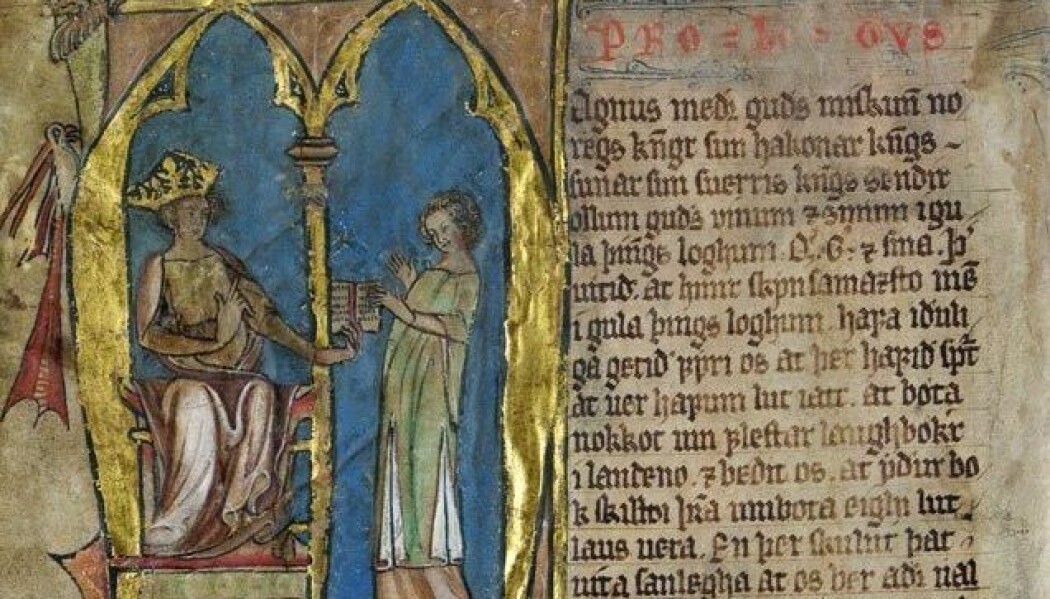 PRO=L=OVS
Agnus medr guds miskun no
regs kngr sun hakonar kngs -
sunar sun suerris kngs sendir
ollum guds vinum ⁊ sinum i gu
la þings loghum. Q. G. ⁊ sina. þ
uitid. at hinir skynsamazsto mē
i gula þings loghum. hafa iduli
ga getid fyri os at þer hafid spt
at uer hafum lut iatt. at bota
nokkot um flestar laughbokr
i landeno. ⁊ bedit os. at ydur bo
k skilldi þra umbota eighi lut
laus uera. En þer skulut þat
uita sanlegha at os ber